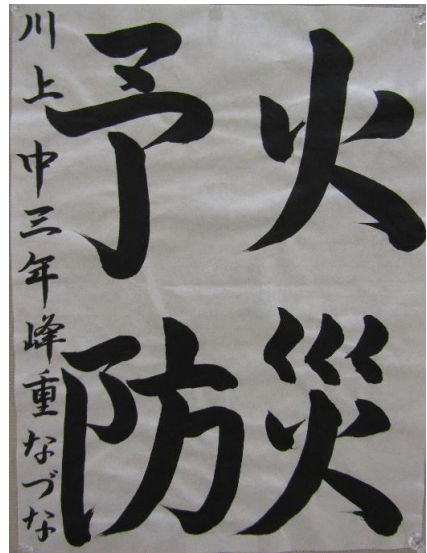 火災
予防
川上中三年峰重なづな